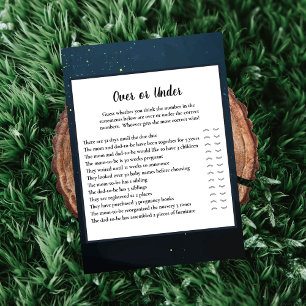 Over or Under
Guess whether you think the number in the
statements below are over or under the correct
numbers. Whoever gets the most correct wins!
There are 32 days until the due date
The mom and dad-to-be have been together for 5 years
The mom and dad-to-be would like to have 3 children
The mom-to-be is 30 weeks pregnant
They waited until 12 weeks to announce
They looked over 50 baby names before choosing
The mom-to-be has 1 sibling
The dad-to-be has 2 siblings
They are registered at 2 places
They have purchased 3 pregnancy books
The mom-to-be reorganized the nursery 3 times
The dad-to-be has assembled 2 pieces of furniture